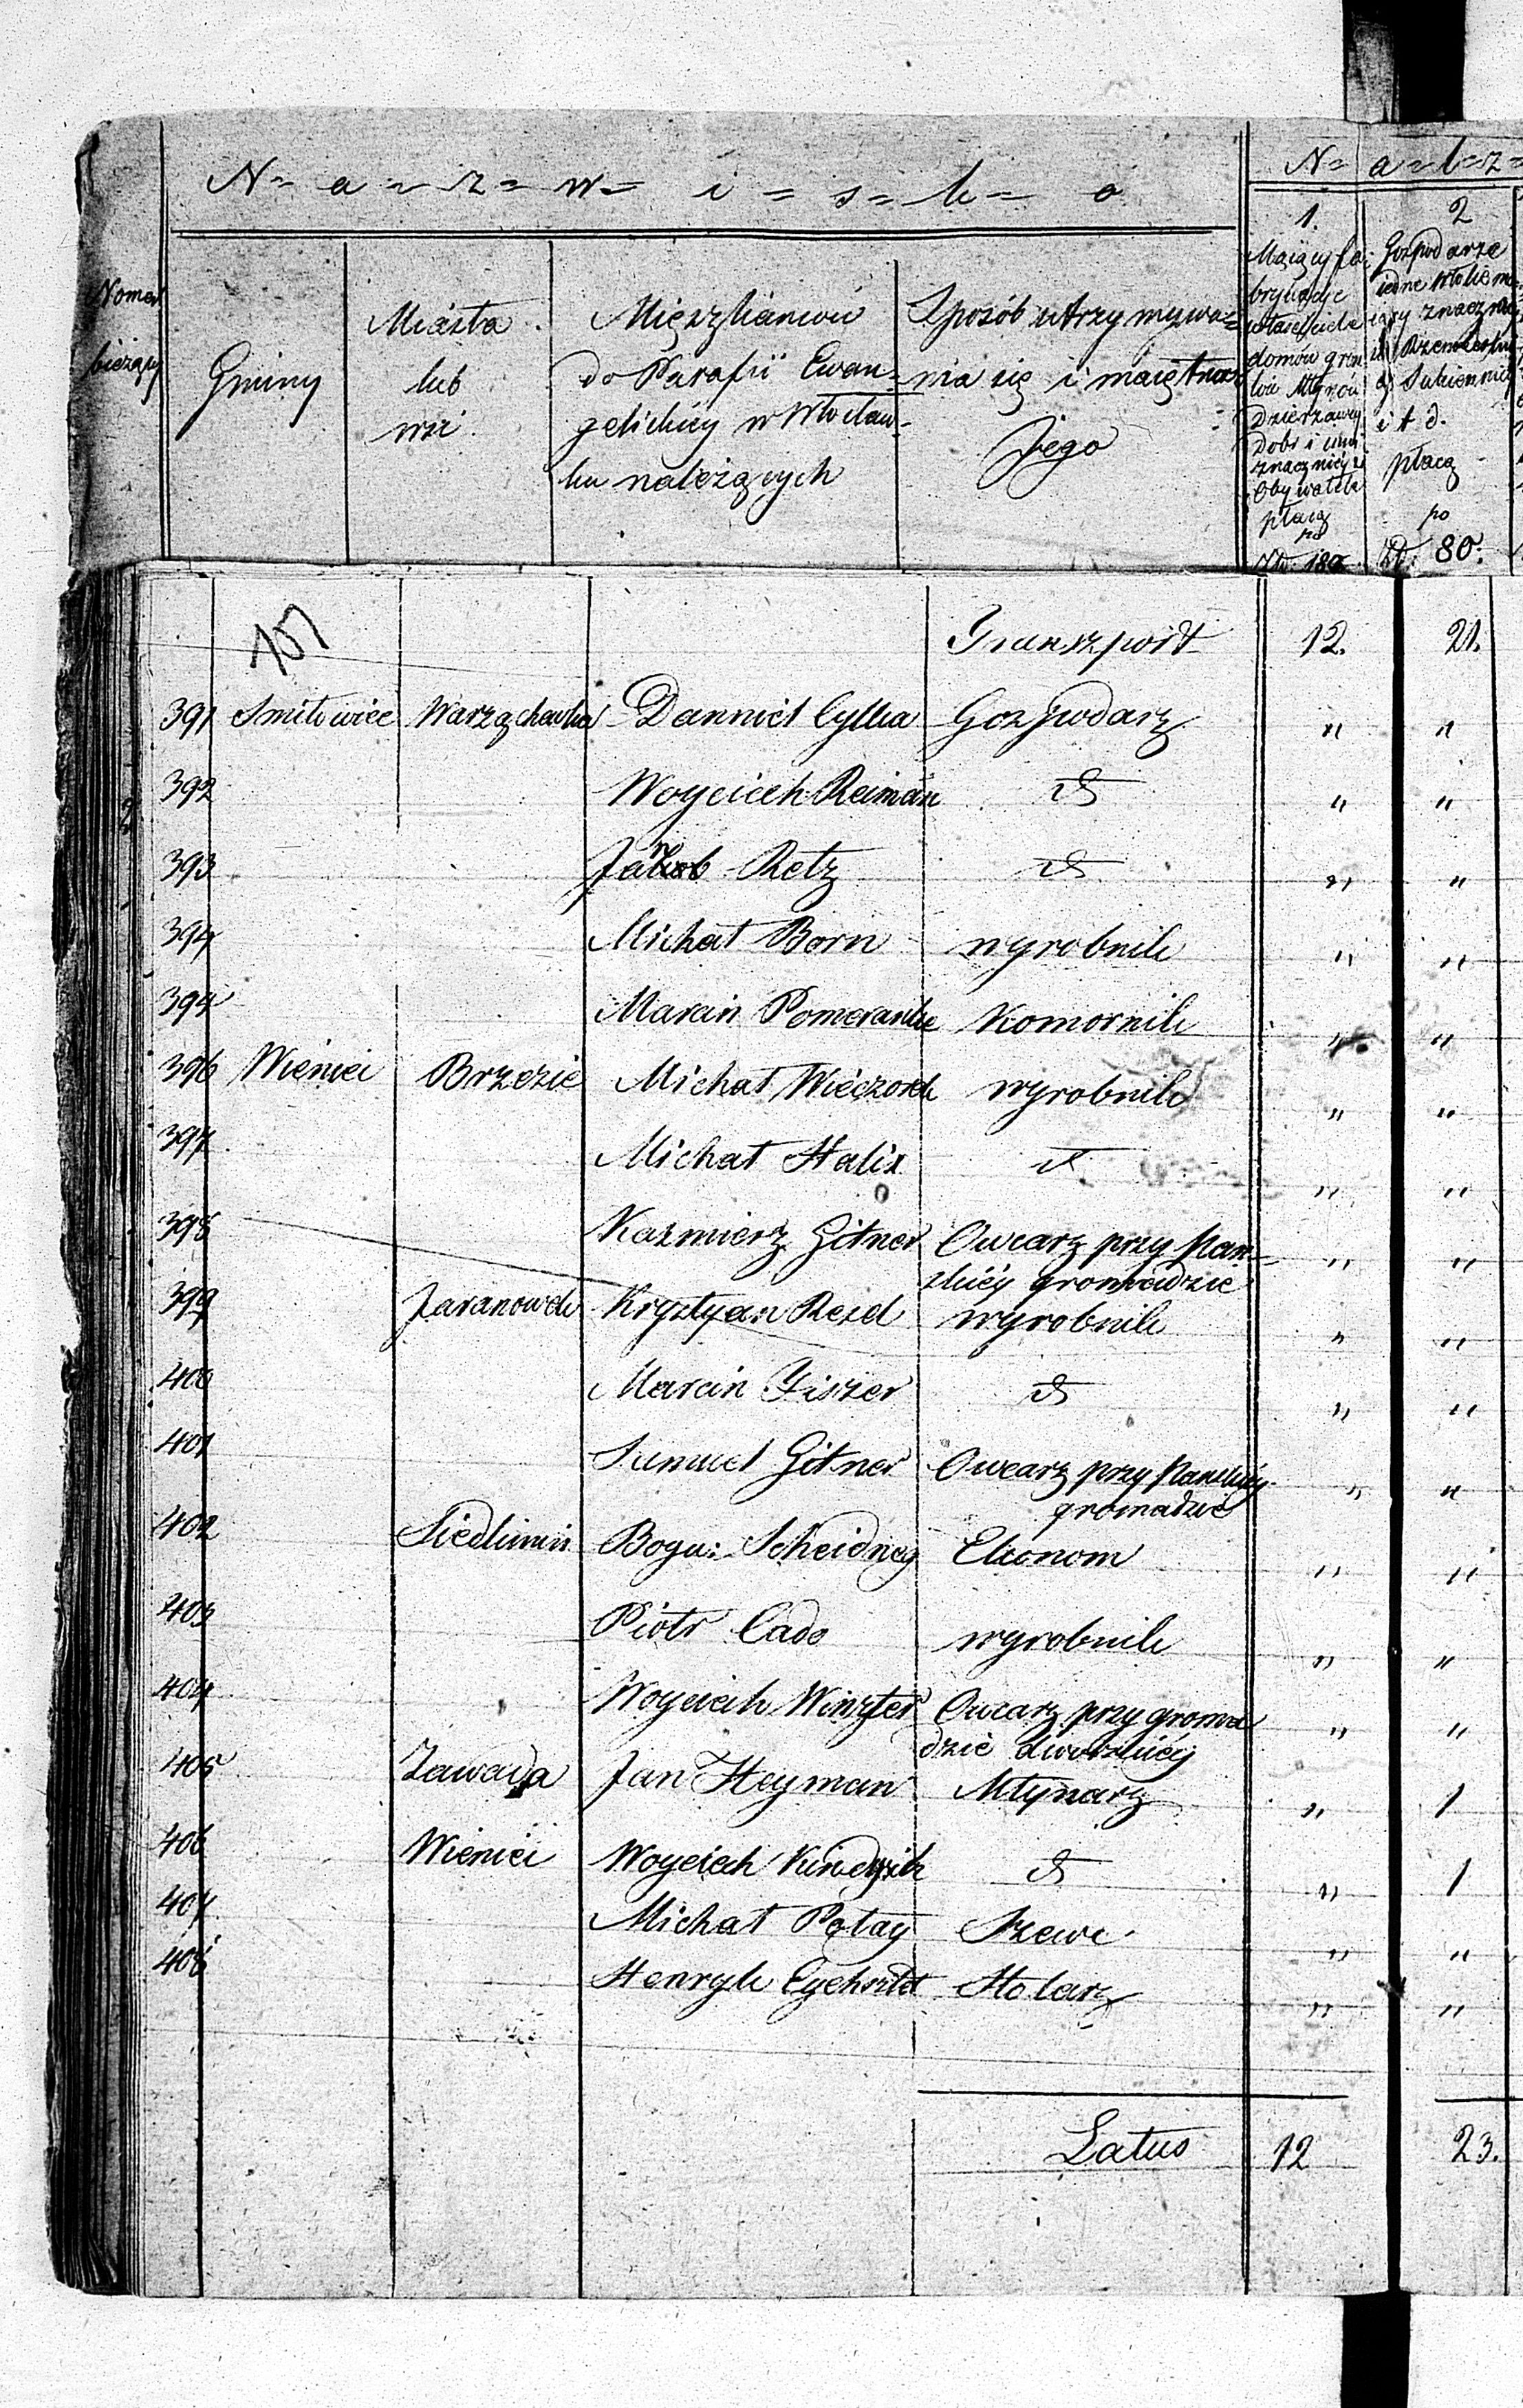 N = a = z = w = i = s = k = o
N = a = l = z =
Nomer bieżący
Gminy
Miasta lub wsi
Mięszkańców
do Parafii Ewan-
gelickiey w Włocław-
ku należących
Sposób utrzymywa=
nia się i maiętność
Jego
1.
Maiący fa-
brykacye
właściciele
domów grun
Młynów
Dzierżawcy
Dobr i inni
znacznieysi
Obywatele
płacą
po
Złt. 180.
2
Gospodarze
znaczni
Rzemieślnicy
Sukiennicy
i t. d.
płacą
po
Złt. 80.
107
Transport 12. 21.
391 Smiłowice Warząchewka Danniel Cylka Gospodarz " "
392 Woyciech Reiman dt " "
393 Jakob Retz dt " "
394 Michał Born wyrobnik " "
395 Marcin Pomeranke Komornik " "
396 Wieniec Brzezie Michał Wieczorek wyrobnik " "
397 Michał Halix dt " "
398 Kazmierz Gitner Owczarz przy Pań- " "
skiéy gromadzie
399 Jaranowek Krystyan Resel wyrobnik " "
400 Marcin Fiszer dt " "
401 Samuel Gitner Owcarz przy Pańskiéy " "
gromadzie
402 Siedlimin Bogu: Scheidney Ekonom " "
403 Piotr Cado wyrobnik " "
404 Woyciech Winzter Owcarz przy groma " "
dzie dworskiéy
405 Zawada Jan Heyman Młynarz " 1
406 Wieniec Woyciech dt " 1
407 Michał Potay Szewc " "
408 Henryk Stolarz " "
Latus 12 23.